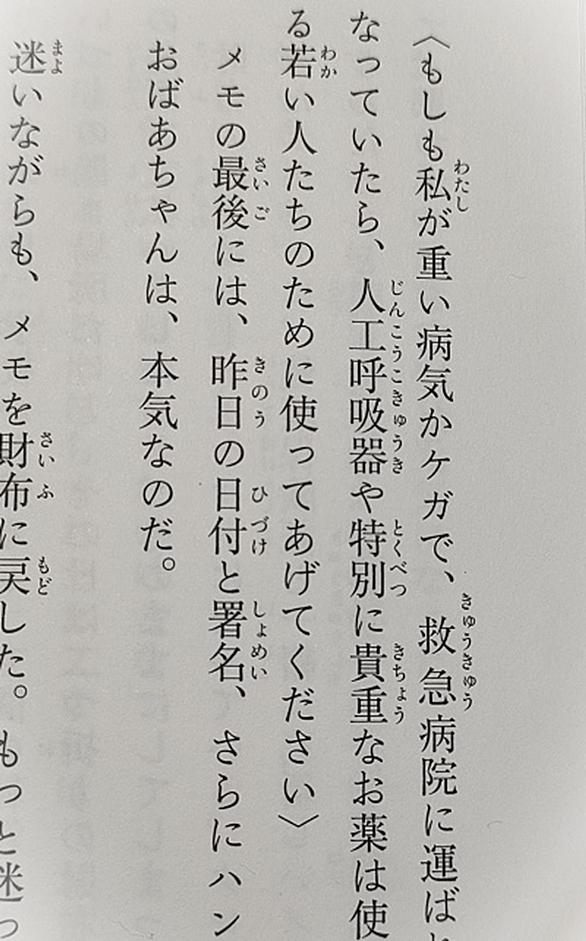 〈もしも私が重い病気かケガで、救急病院に運ば
なっていたら、人工呼吸器や特別に貴重なお薬は使
る若い人たちのために使ってあげてください〉
メモの最後には、昨日の日付と署名、さらにハン
おばあちゃんは、本気なのだ。
迷いながらも、メモを財布に戻した。もっと迷っ